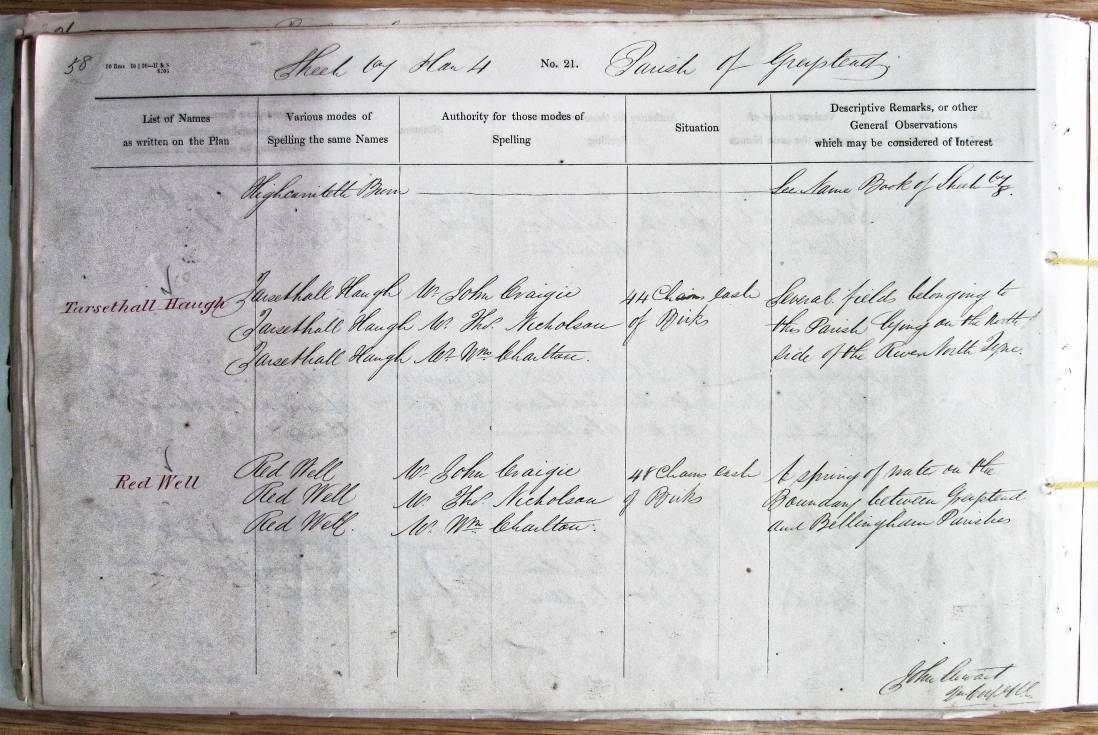 58
Sheet 69 Plan 4 No. 21. Parish of Greystead
List of Names
as written on the Plan
Various modes of
Spelling the same Names
Authority for those modes of
Spelling
Situation
Descriptive Remarks, or other
General Observations
which may be considered of Interest
Burn See Name Book of Sheet
Tarsethall Haugh Tarsethall Haugh Mr. John Craigie 44 Chains East Several fields belonging to
Tarsethall Haugh Mr. Thos. Nicholson of Birks this Parish lying on the North
Tarsethall Haugh Mr. Wm. Charlton. side of the River North Tyne.
Red Well Red Well Mr. John Craigie 48 Chains East A spring of water on the
Red Well Mr. Thos. Nicholson of Birks Boundary between Greystead
Red Well. Mr. Wm. Charlton. and Bellingham Parishes
John